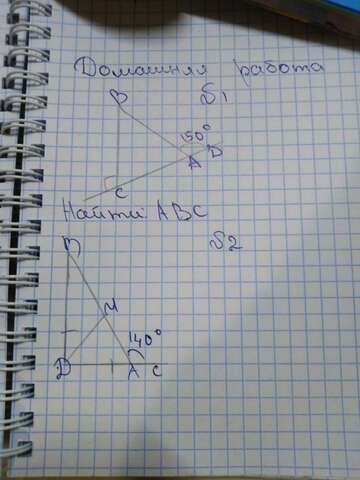 Домашняя работа
B
№1
150°
A
D
C
Найти: ABC
№2
140°
D
A
C